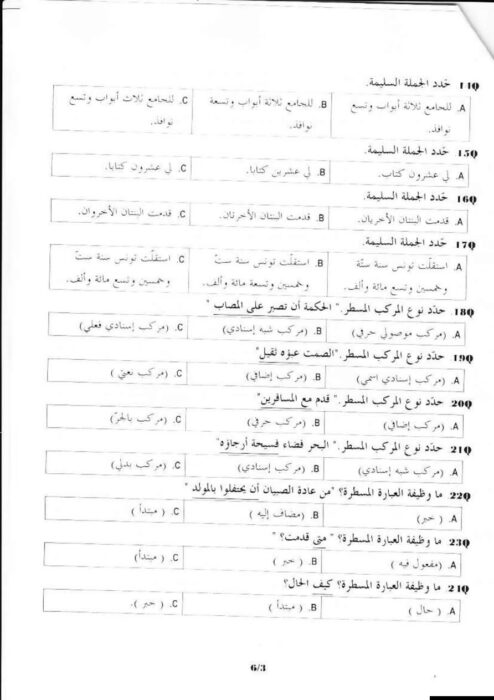 14Q حدد الجملة السليمة.
A. للجامع ثلاثة أبواب وتسع نوافذ. B. للجامع ثلاثة أبواب وتسعة نوافذ. C. للجامع ثلاث أبواب وتسع نوافذ.
15Q حدد الجملة السليمة.
A. لي عشرون كتاب. B. لي عشرين كتابا. C. لي عشرون كتابا.
16Q حدد الجملة السليمة.
A. قدمت البنتان الأخريان. B. قدمت البنتان الأخرتان. C. قدمت البنتان الأخروان.
17Q حدد الجملة السليمة.
A. استقلّت تونس سنة ستّة وخمسين وتسع مائة وألف. B. استقلّت تونس سنة ستّ وخمسين وتسعة مائة وألف. C. استقلّت تونس سنة ستّ وخمسين وتسع مائة وألف.
18Q حدّد نوع المركب المسطر." الحكمة أن تصبر على المصاب "
A. (مركب موصولي حرفي) B. (مركب شبه إسنادي) C. (مركب إسنادي فعلي)
19Q حدّد نوع المركب المسطر."الصمت عبؤه ثقيل"
A. (مركب إسنادي اسمي) B. (مركب إضافي) C. (مركب نعتي )
20Q حدّد نوع المركب المسطر." قدم مع المسافرين"
A. (مركب إضافي) B. (مركب حرفي) C. (مركب بالجرّ)
21Q حدّد نوع المركب المسطر." البحر فضاء فسيحة أرجاؤه"
A. (مركب شبه إسنادي) B. (مركب إسنادي) C. (مركب بدلي)
22Q ما وظيفة العبارة المسطرة؟ "من عادة الصبيان أن يحتفلوا بالمولد "
A. ( خبر ) B. (مضاف إليه ) C. ( مبتدأ )
23Q ما وظيفة العبارة المسطرة؟ " متى قدمت؟ "
A. (مفعول فيه ) B. ( خبر ) C. ( مبتدأ)
24Q ما وظيفة العبارة المسطرة؟ كيف الحال؟
A. ( حال ) B. ( مبتدأ ) C. ( خبر ).
6/3